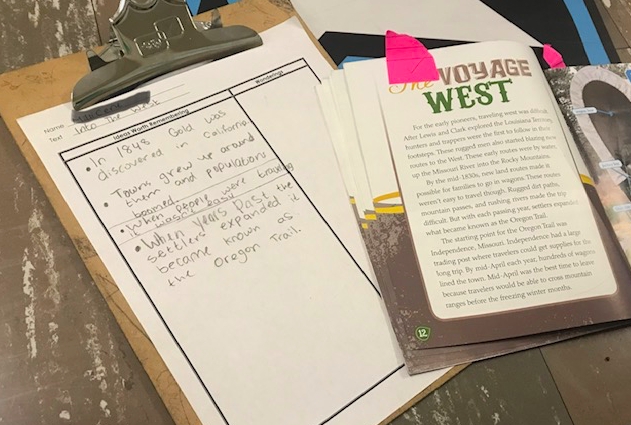 Name
Text Into The West
Ideas Worth Remembering
Wonderings
• In 1848 Gold was
discovered in California
• Towns grew up around
them and populations
boomed.
• When people were traveling
it wasn't easy
• When years past the
settlers expanded it
became known as
the Oregon Trail.
The VOYAGE
WEST
For the early pioneers, traveling west was difficult.
After Lewis and Clark explored the Louisiana Territory,
hunters and trappers were the first to follow in their
footsteps. These rugged men also started blazing new
routes to the West. These early routes were by water,
up the Missouri River into the Rocky Mountains.
By the mid-1830s, new land routes made it
possible for families to go in wagons. These routes
weren't easy to travel though. Rugged dirt paths,
mountain passes, and rushing rivers made the trip
difficult. But with each passing year, settlers expanded
what became known as the Oregon Trail.
The starting point for the Oregon Trail was
Independence, Missouri. Independence had a large
trading post where travelers could get supplies for the
long trip. By mid-April each year, hundreds of wagons
lined the town. Mid-April was the best time to leave
because travelers would be able to cross mountain
ranges before the freezing winter months.
12